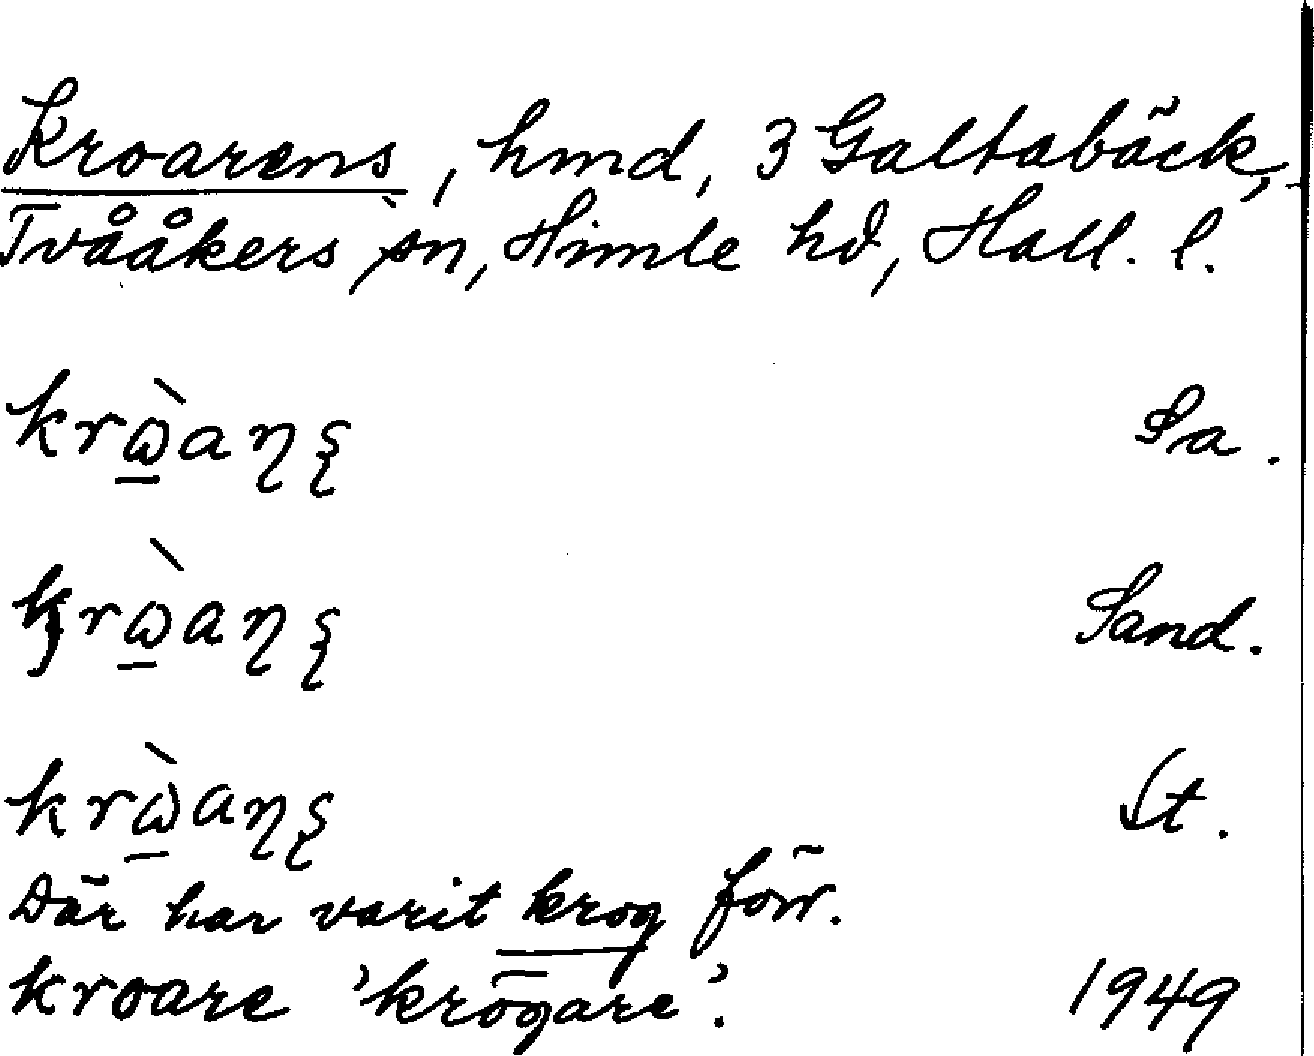 Kroarens, hmd, 3 Galtabäck,
Tvååkers sn, Himle hd, Hall. l.
krὼ̲aƞꜱ Sa.
ƙrὼ̲aƞꜱ Sand.
krὼ̲aƞꜱ St.
Där har varit krog förr.
kroare 'krögare'. 1949